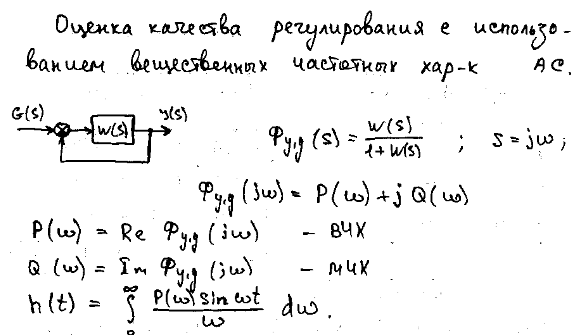 Оценка качества регулирования с использо-
ванием вещественных частотных хар-к АС.
G(s) W(s) y(s)
Φy,g (s) = W(s) / 1+W(s) ; s=jω;
Φy,g (jω) = P(ω)+j Q(ω)
P(ω) = Re Φy,g (jω) – ВЧХ
Q (ω) = Im Φy,g (jω) – МЧХ
h(t) = ∫ ∞ P(ω) sin ωt / ω dω.